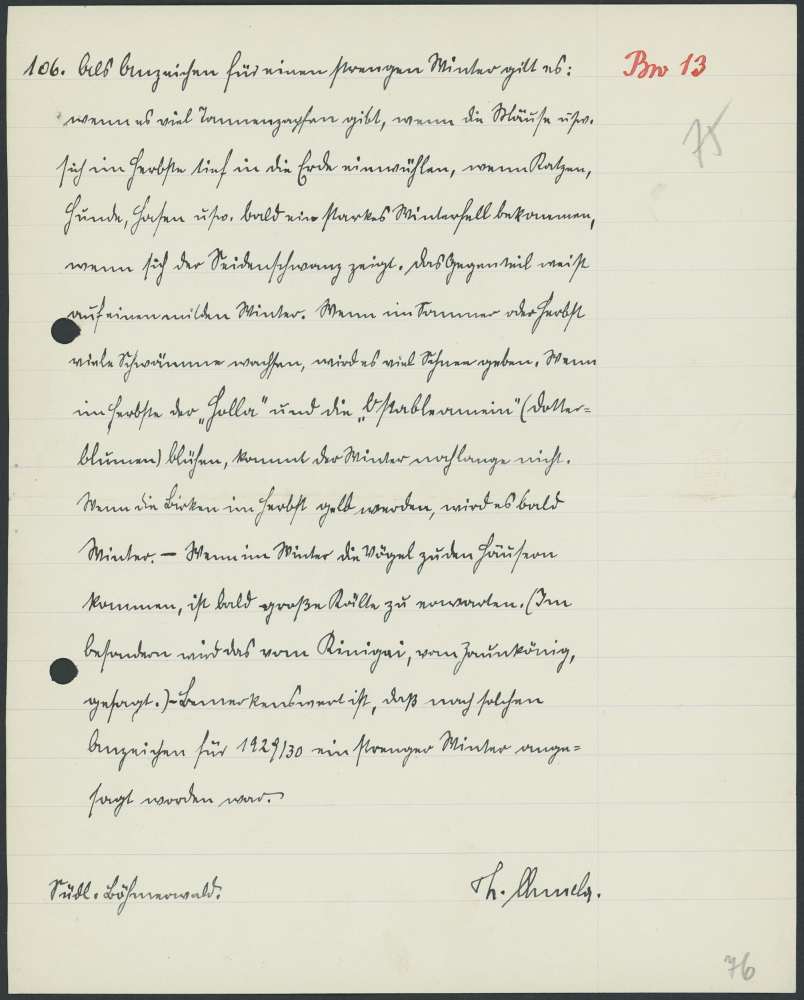 106. Als Anzeichen für einen strengen Winter gilt es: Bw 13
wenn es viel Tannenzapfen gibt, wenn die Mäuse usw. 75
sich im Herbste tief in die Erde einwühlen, wenn Katzen,
Hunde, Hasen usw. bald ein starkes Winterfell bekommen,
wenn sich der Seidenschwanz zeigt. Das Gegenteil weist
auf einen milden Winter. Wenn im Sommer oder Herbst
viele Schwämme wachsen, wird es viel Schnee geben. Wenn
im Herbste der „Holla" und die (Dotter=
blumen) blühen, kommt der Winter noch lange nicht.
Wenn die Birken im Herbst gelb werden, wird es bald
Winter. — Wenn im Winter die Vögel zu den Häusern
kommen, ist bald große Kälte zu erwarten. (Im
besondern wird das vom Kinigai, vom Zaunkönig,
gesagt.) – Bemerkenswert ist, daß nach solchen
Anzeichen für 1929/30 ein strenger Winter ange=
sagt worden war.
Südl. Böhmerwald. Th. Chmela.
76